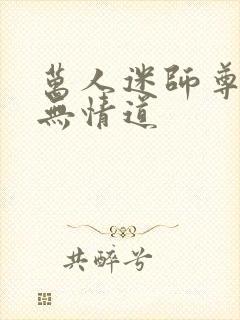 萬人迷師尊
無情道
共醉兮